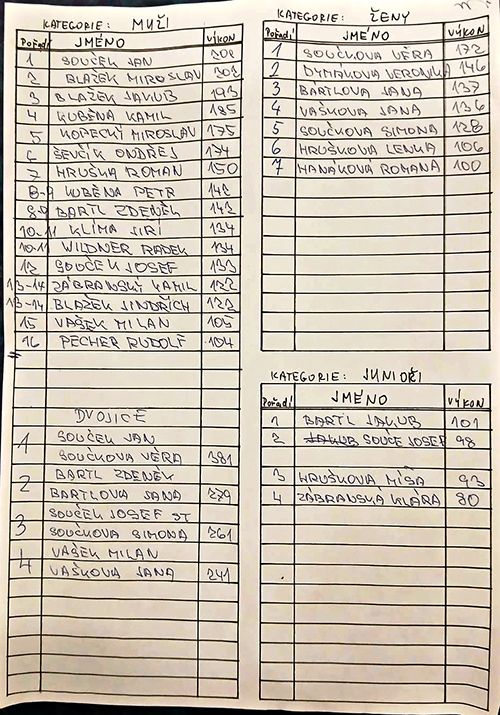 KATEGORIE: MUŽI
Pořadí JMÉNO VÝKON
1 SOUČEK JAN 208
2 BLAŽEK MIROSLAV 202
3 BLAŽEK JAKUB 193
4 KUBĚNA KAMIL 185
5 KOŘECKÝ MIROSLAV 175
6 ŠEVČÍK ONDŘEJ 174
7 HRUŠKA ROMAN 150
8-9 KUBĚNA PETR 142
8-9 BARTL ZDENĚK 142
10-11 KLÍMA JIŘÍ 134
10-11 WILDNER RADEK 134
12 SOUČEK JOSEF 133
13-14 ZÁBRANSKÝ KAMIL 122
13-14 BLAŽEK JINDŘICH 122
15 VAŠEK MILAN 105
16 PECHER RUDOLF 104
DVOJICE
1 SOUČEK JAN
SOUČKOVA VĚRA 381
2 BARTL ZDENĚK
BARTLOVA JANA 279
3 SOUČEK JOSEF ST
SOUČKOVA SIMONA 261
4 VAŠEK MILAN
VAŠKOVA JANA 241
KATEGORIE: ŽENY
Pořadí JMÉNO VÝKON
1 SOUČKOVA VĚRA 172
2 DYMÁKOVA VERONIKA 146
3 BARTLOVA JANA 137
4 VAŠKOVA JANA 136
5 SOUČKOVA SIMONA 128
6 HRUŠKOVA LENKA 106
7 HANÁKOVÁ ROMANA 100
KATEGORIE: JUNIOŘI
Pořadí JMÉNO VÝKON
1 BARTL JAKUB 101
2 JAKUB SOUČE JOSEF 98
3 HRUŠKOVA MÍSA 93
4 ZÁBRANSKÁ KLÁRA 80